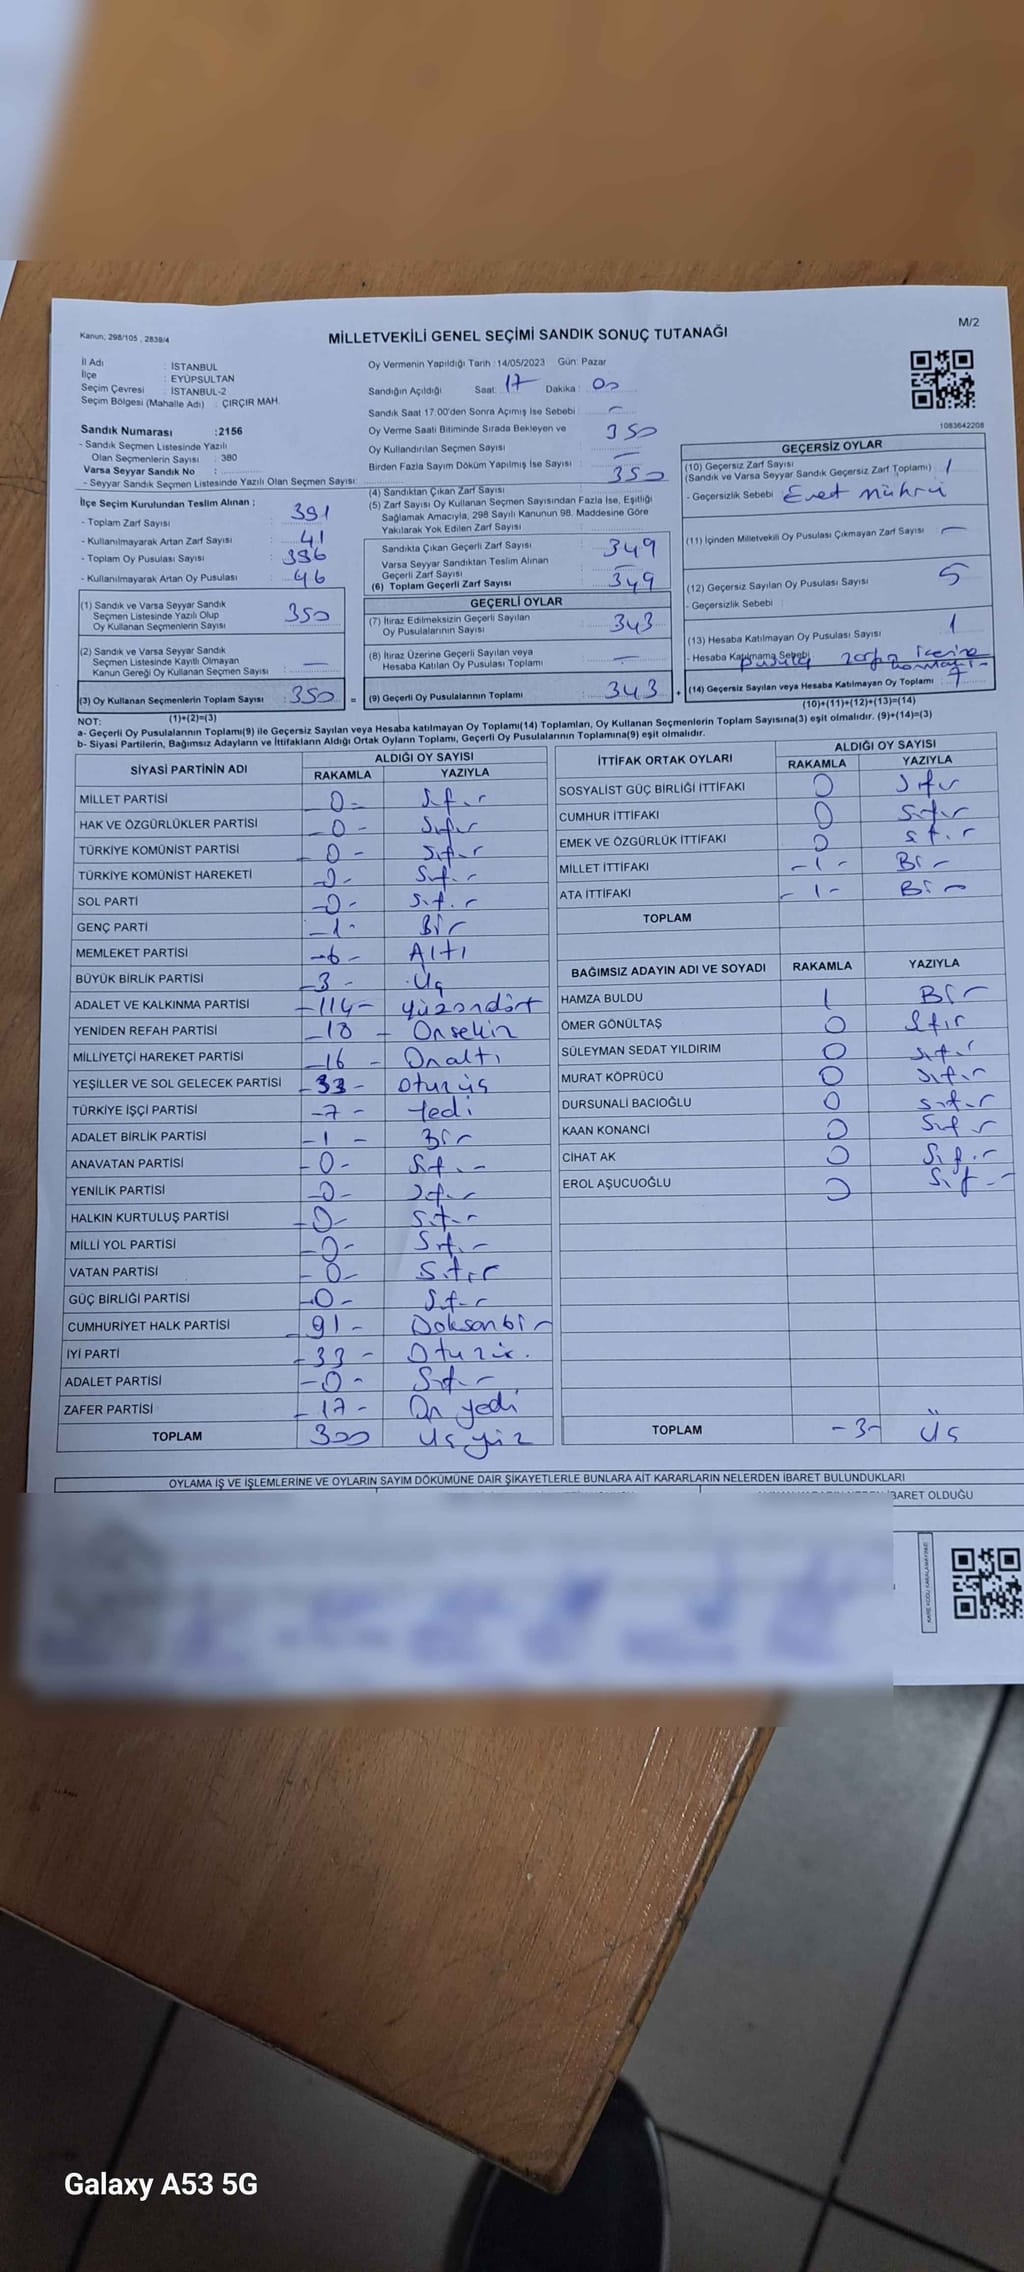 Kanun; 298/105 , 2839/4
MİLLETVEKİLİ GENEL SEÇİMİ SANDIK SONUÇ TUTANAĞI
M/2
İl Adı : İSTANBUL
İlçe : EYÜPSULTAN
Seçim Çevresi : İSTANBUL-2
Seçim Bölgesi (Mahalle Adı) : ÇIRÇIR MAH.
Sandık Numarası :2156
- Sandık Seçmen Listesinde Yazılı
Olan Seçmenlerin Sayısı : 380
Varsa Seyyar Sandık No :
- Seyyar Sandık Seçmen Listesinde Yazılı Olan Seçmen Sayısı:
İlçe Seçim Kurulundan Teslim Alınan ;
- Toplam Zarf Sayısı : 391
- Kullanılmayarak Artan Zarf Sayısı : 41
- Toplam Oy Pusulası Sayısı : 396
- Kullanılmayarak Artan Oy Pusulası : 46
(1) Sandık ve Varsa Seyyar Sandık
Seçmen Listesinde Yazılı Olup
Oy Kullanan Seçmenlerin Sayısı : 350
(2) Sandık ve Varsa Seyyar Sandık
Seçmen Listesinde Kayıtlı Olmayan
Kanun Gereği Oy Kullanan Seçmen Sayısı : —
(3) Oy Kullanan Seçmenlerin Toplam Sayısı : 350
(1)+(2)=(3)
Oy Vermenin Yapıldığı Tarih :14/05/2023 Gün: Pazar
Sandığın Açıldığı Saat: 17 Dakika : 00
Sandık Saat 17:00'den Sonra Açımış İse Sebebi : —
Oy Verme Saati Bitiminde Sırada Bekleyen ve
Oy Kullandırılan Seçmen Sayısı : 350
Birden Fazla Sayım Döküm Yapılmış İse Sayısı : —
(4) Sandıktan Çıkan Zarf Sayısı : 350
(5) Zarf Sayısı Oy Kullanan Seçmen Sayısından Fazla İse, Eşitliği
Sağlamak Amacıyla, 298 Sayılı Kanunun 98. Maddesine Göre
Yakılarak Yok Edilen Zarf Sayısı :
Sandıkta Çıkan Geçerli Zarf Sayısı : 349
Varsa Seyyar Sandıktan Teslim Alınan
Geçerli Zarf Sayısı : —
(6) Toplam Geçerli Zarf Sayısı : 349
GEÇERLİ OYLAR
(7) İtiraz Edilmeksizin Geçerli Sayılan
Oy Pusulalarının Sayısı : 343
(8) İtiraz Üzerine Geçerli Sayılan veya
Hesaba Katılan Oy Pusulası Toplamı : —
= (9) Geçerli Oy Pusulalarının Toplamı : 343 +
1083642208
GEÇERSİZ OYLAR
(10) Geçersiz Zarf Sayısı
(Sandık ve Varsa Seyyar Sandık Geçersiz Zarf Toplamı) : 1
- Geçersizlik Sebebi : Evet mührü
(11) İçinden Milletvekili Oy Pusulası Çıkmayan Zarf Sayısı : —
(12) Geçersiz Sayılan Oy Pusulası Sayısı : 5
- Geçersizlik Sebebi :
(13) Hesaba Katılmayan Oy Pusulası Sayısı : 1
- Hesaba Katılmama Sebebi : pusula zarfın içerine
(14) Geçersiz Sayılan veya Hesaba Katılmayan Oy Toplamı : 7
(10)+(11)+(12)+(13)=(14)
NOT:
a- Geçerli Oy Pusulalarının Toplamı(9) ile Geçersiz Sayılan veya Hesaba katılmayan Oy Toplamı(14) Toplamları, Oy Kullanan Seçmenlerin Toplam Sayısına(3) eşit olmalıdır. (9)+(14)=(3)
b- Siyasi Partilerin, Bağımsız Adayların ve İttifakların Aldığı Ortak Oyların Toplamı, Geçerli Oy Pusulalarının Toplamına(9) eşit olmalıdır.
SİYASİ PARTİNİN ADI ALDIĞI OY SAYISI
RAKAMLA YAZIYLA
MİLLET PARTİSİ -0- Sıfır
HAK VE ÖZGÜRLÜKLER PARTİSİ -0- Sıfır
TÜRKİYE KOMÜNİST PARTİSİ -0- Sıfır
TÜRKİYE KOMÜNİST HAREKETİ -0- Sıfır
SOL PARTİ -0- Sıfır
GENÇ PARTİ -1- Bir
MEMLEKET PARTİSİ -6- Altı
BÜYÜK BİRLİK PARTİSİ -3- Üç
ADALET VE KALKINMA PARTİSİ -114- yüzondört
YENİDEN REFAH PARTİSİ -18- Onsekiz
MİLLİYETÇİ HAREKET PARTİSİ -16- Onaltı
YEŞİLLER VE SOL GELECEK PARTİSİ -33- Otuzüç
TÜRKİYE İŞÇİ PARTİSİ -7- Yedi
ADALET BİRLİK PARTİSİ -1- Bir
ANAVATAN PARTİSİ -0- Sıfır
YENİLİK PARTİSİ -0- Sıfır
HALKIN KURTULUŞ PARTİSİ -0- Sıfır
MİLLİ YOL PARTİSİ -0- Sıfır
VATAN PARTİSİ -0- Sıfır
GÜÇ BİRLİĞİ PARTİSİ -0- Sıfır
CUMHURİYET HALK PARTİSİ -91- Doksanbir
İYİ PARTİ -33- Otuzüç
ADALET PARTİSİ -0- Sıfır
ZAFER PARTİSİ -17- On yedi
TOPLAM 300 Üç yüz
İTTİFAK ORTAK OYLARI ALDIĞI OY SAYISI
RAKAMLA YAZIYLA
SOSYALİST GÜÇ BİRLİĞİ İTTİFAKI 0 Sıfır
CUMHUR İTTİFAKI 0 Sıfır
EMEK VE ÖZGÜRLÜK İTTİFAKI 0 Sıfır
MİLLET İTTİFAKI -1- Bir
ATA İTTİFAKI -1- Bir
TOPLAM
BAĞIMSIZ ADAYIN ADI VE SOYADI RAKAMLA YAZIYLA
HAMZA BULDU 1 Bir
ÖMER GÖNÜLTAŞ 0 Sıfır
SÜLEYMAN SEDAT YILDIRIM 0 Sıfır
MURAT KÖPRÜCÜ 0 Sıfır
DURSUNALİ BACIOĞLU 0 Sıfır
KAAN KONANCI 0 Sıfır
CİHAT AK 0 Sıfır
EROL AŞUCUOĞLU 0 Sıfır
TOPLAM -3- Üç
OYLAMA İŞ VE İŞLEMLERİNE VE OYLARIN SAYIM DÖKÜMÜNE DAİR ŞİKAYETLERLE BUNLARA AİT KARARLARIN NELERDEN İBARET BULUNDUKLARI
İBARET OLDUĞU
Galaxy A53 5G